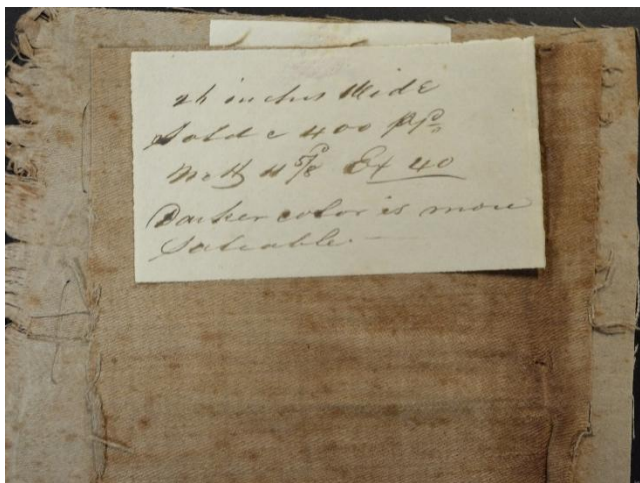 inches Wide
Sold c 400 ps
Nett 11 5/8 Ex 40
Darker color is more
Saleable.